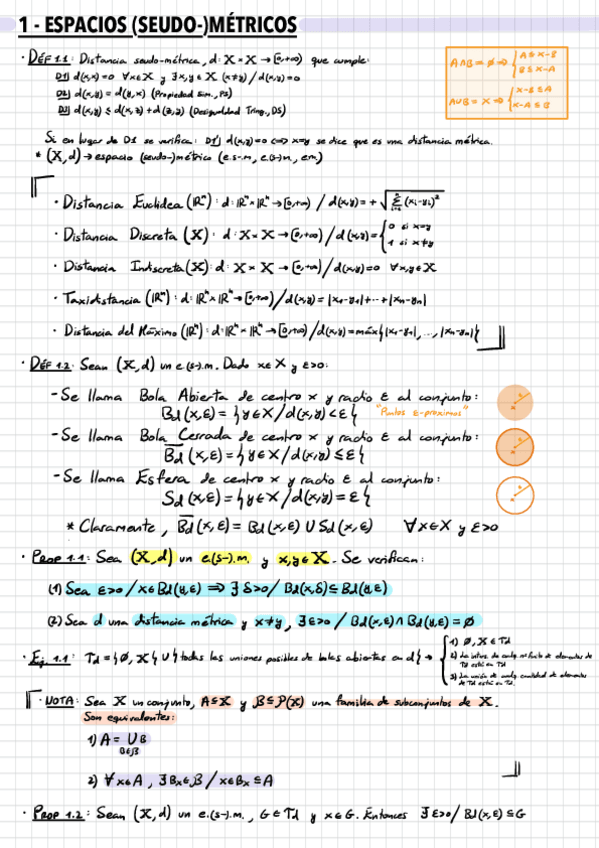 1 - ESPACIOS (SEUDO-)MÉTRICOS
· DÉF 1.1: Distancia seudo-métrica, d: X×X → [0,+∞) que cumple:
D1) d(x,x)=0 ∀x∈X y ∃x,y∈X (x≠y) / d(x,y)=0
D2) d(x,y) = d(y,x) (Propiedad Sim., PS)
D3) d(x,y) ≤ d(x,z) + d(z,y) (Desigualdad Triang., DS)
A∩B = ∅ ⇒ { A ⊆ X-B
B ⊆ X-A
A∪B = X ⇒ { X-B ⊆ A
X-A ⊆ B
Si en lugar de D1 se verifica: D1') d(x,y)=0 ⟺ x=y se dice que es una distancia métrica.
* (X,d) → espacio (seudo-)métrico (e.s-.m, e.(s-)m., e.m.)
· Distancia Euclídea (ℝⁿ): d: ℝⁿ×ℝⁿ → [0,+∞) / d(x,y) = + √(Σⁿᵢ₌₁ (xᵢ-yᵢ)²)
· Distancia Discreta (X): d: X×X → [0,+∞) / d(x,y) = { 0 si x=y
1 si x≠y
· Distancia Indiscreta (X): d: X×X → [0,+∞) / d(x,y)=0 ∀x,y∈X
· Taxidistancia (ℝⁿ): d: ℝⁿ×ℝⁿ → [0,+∞) / d(x,y) = |x₁-y₁|+···+|xₙ-yₙ|
· Distancia del Máximo (ℝⁿ): d: ℝⁿ×ℝⁿ → [0,+∞) / d(x,y) = máx{|x₁-y₁|, ..., |xₙ-yₙ|}
· DÉF 1.2: Sean (X,d) un e.(s-).m. Dado x∈X y ε>0:
- Se llama Bola Abierta de centro x y radio ε al conjunto:
Bd(x,ε) = {y∈X / d(x,y) < ε} "Puntos ε-próximos"
- Se llama Bola Cerrada de centro x y radio ε al conjunto:
B̅d̅(x,ε) = {y∈X / d(x,y) ≤ ε}
- Se llama Esfera de centro x y radio ε al conjunto:
Sd(x,ε) = {y∈X / d(x,y) = ε}
* Claramente, B̅d̅(x,ε) = Bd(x,ε) ∪ Sd(x,ε) ∀x∈X y ε>0
· PROP 1.1: Sea (X,d) un e.(s-).m. y x,y∈X. Se verifican:
(1) Sea ε>0 / x∈Bd(y,ε) ⟹ ∃ δ>0 / Bd(x,δ) ⊆ Bd(y,ε)
(2) Sea d una distancia métrica y x≠y, ∃ ε>0 / Bd(x,ε) ∩ Bd(y,ε) = ∅
· Ej. 1.1: Td = {∅, X} ∪ {todas las uniones posibles de bolas abiertas en d} → { 1) ∅, X ∈ Td
2) La inters. de cualq. nº finito de elementos de Td está en Td.
3) La unión de cualq. cantidad de elementos de Td está en Td.
· NOTA: Sea X un conjunto, A⊆X y β⊆P(X) una familia de subconjuntos de X.
Son equivalentes:
1) A = ∪ B
B∈β
2) ∀x∈A, ∃ Bx∈β / x∈Bx ⊆ A
· PROP 1.2: Sean (X,d) un e.(s-).m., G∈Td y x∈G. Entonces ∃ε>0 / Bd(x,ε) ⊆ G